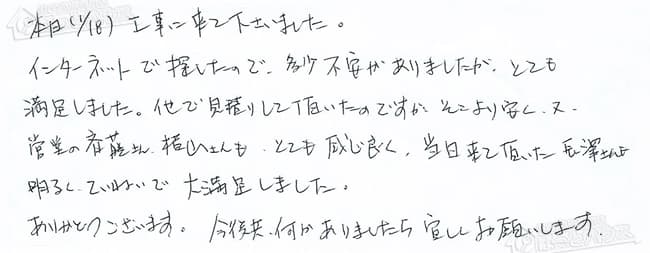 本日(1/18) 工事に来て下さいました。
インターネットで探したので、多少不安がありましたが、とても
満足しました。他で見積りして頂いたのですが、そこより安く、又、
営業の斉藤さん、横山さんも、とても感じ良く、当日来て頂いた毛澤さんも
明るく、ていねいで大満足しました。
ありがとうございます。今後共、何かありましたら宜しくお願いします。